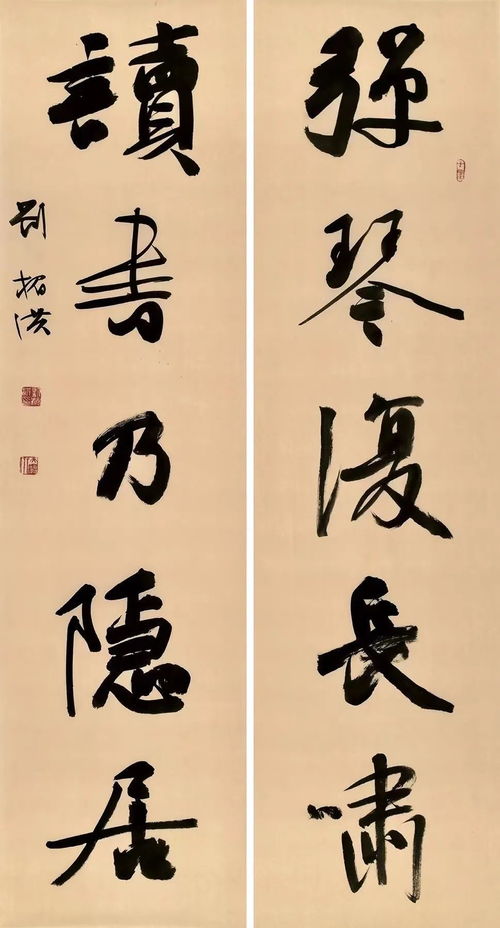 彈琴復長嘯
讀書乃隱居
劉柘洪